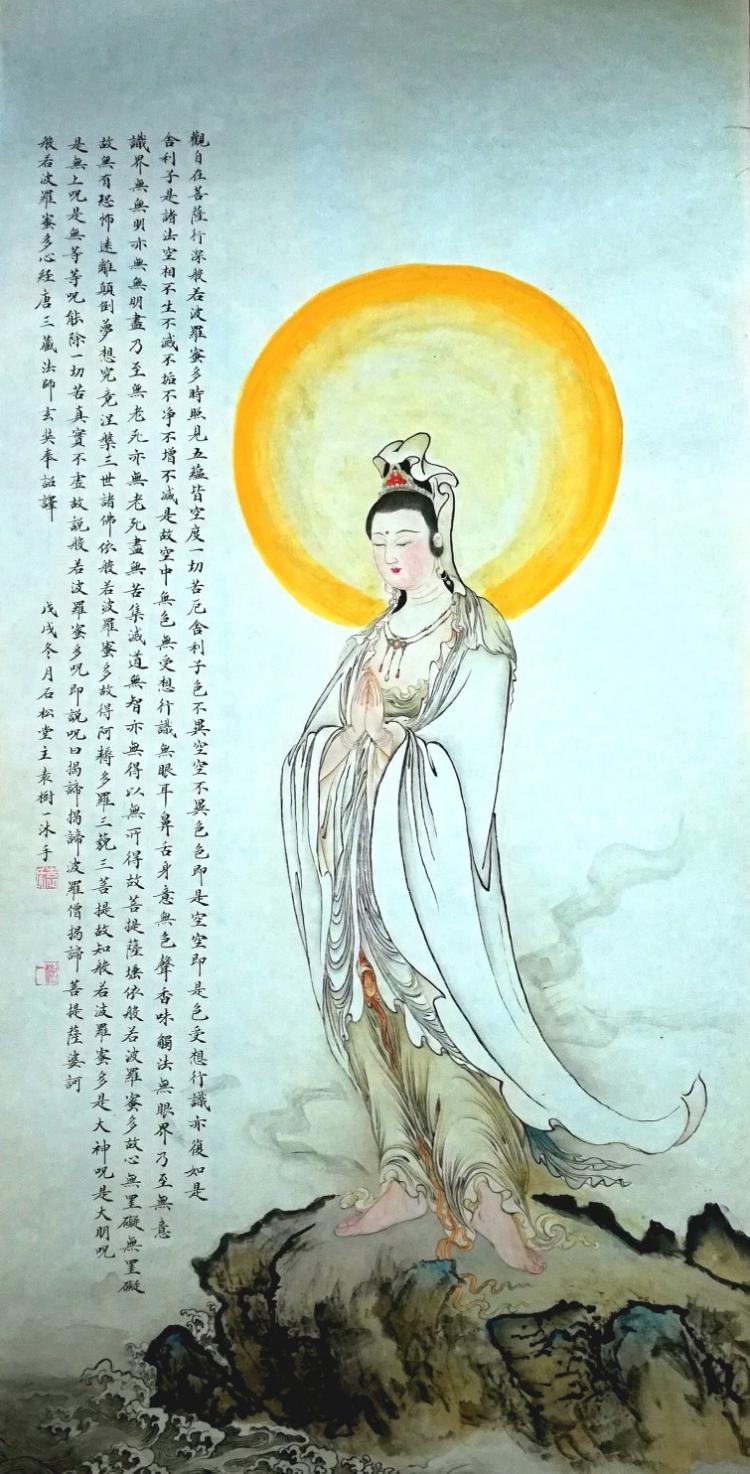 觀自在菩薩行深般若波羅蜜多時照見五蘊皆空度一切苦厄舍利子色不異空空不異色色即是空空即是色受想行識亦復如是
舍利子是諸法空相不生不滅不垢不净不增不减是故空中無色無受想行識無眼耳鼻舌身意無色聲香味觸法無眼界乃至無意
識界無無明亦無無明盡乃至無老死亦無老死盡無苦集滅道無智亦無得以無所得故菩提薩埵依般若波羅蜜多故心無罣礙無罣礙
故無有恐怖遠離顛倒夢想究竟涅槃三世諸佛依般若波羅蜜多故得阿耨多羅三藐三菩提故知般若波羅蜜多是大神咒是大明咒
是無上咒是無等等咒能除一切苦真實不虛故説般若波羅蜜多咒即説咒曰揭諦揭諦波羅僧揭諦菩提薩婆訶
般若波羅蜜多心經唐三藏法師玄奘奉詔譯 戊戌冬月石松堂主袁樹一沐手